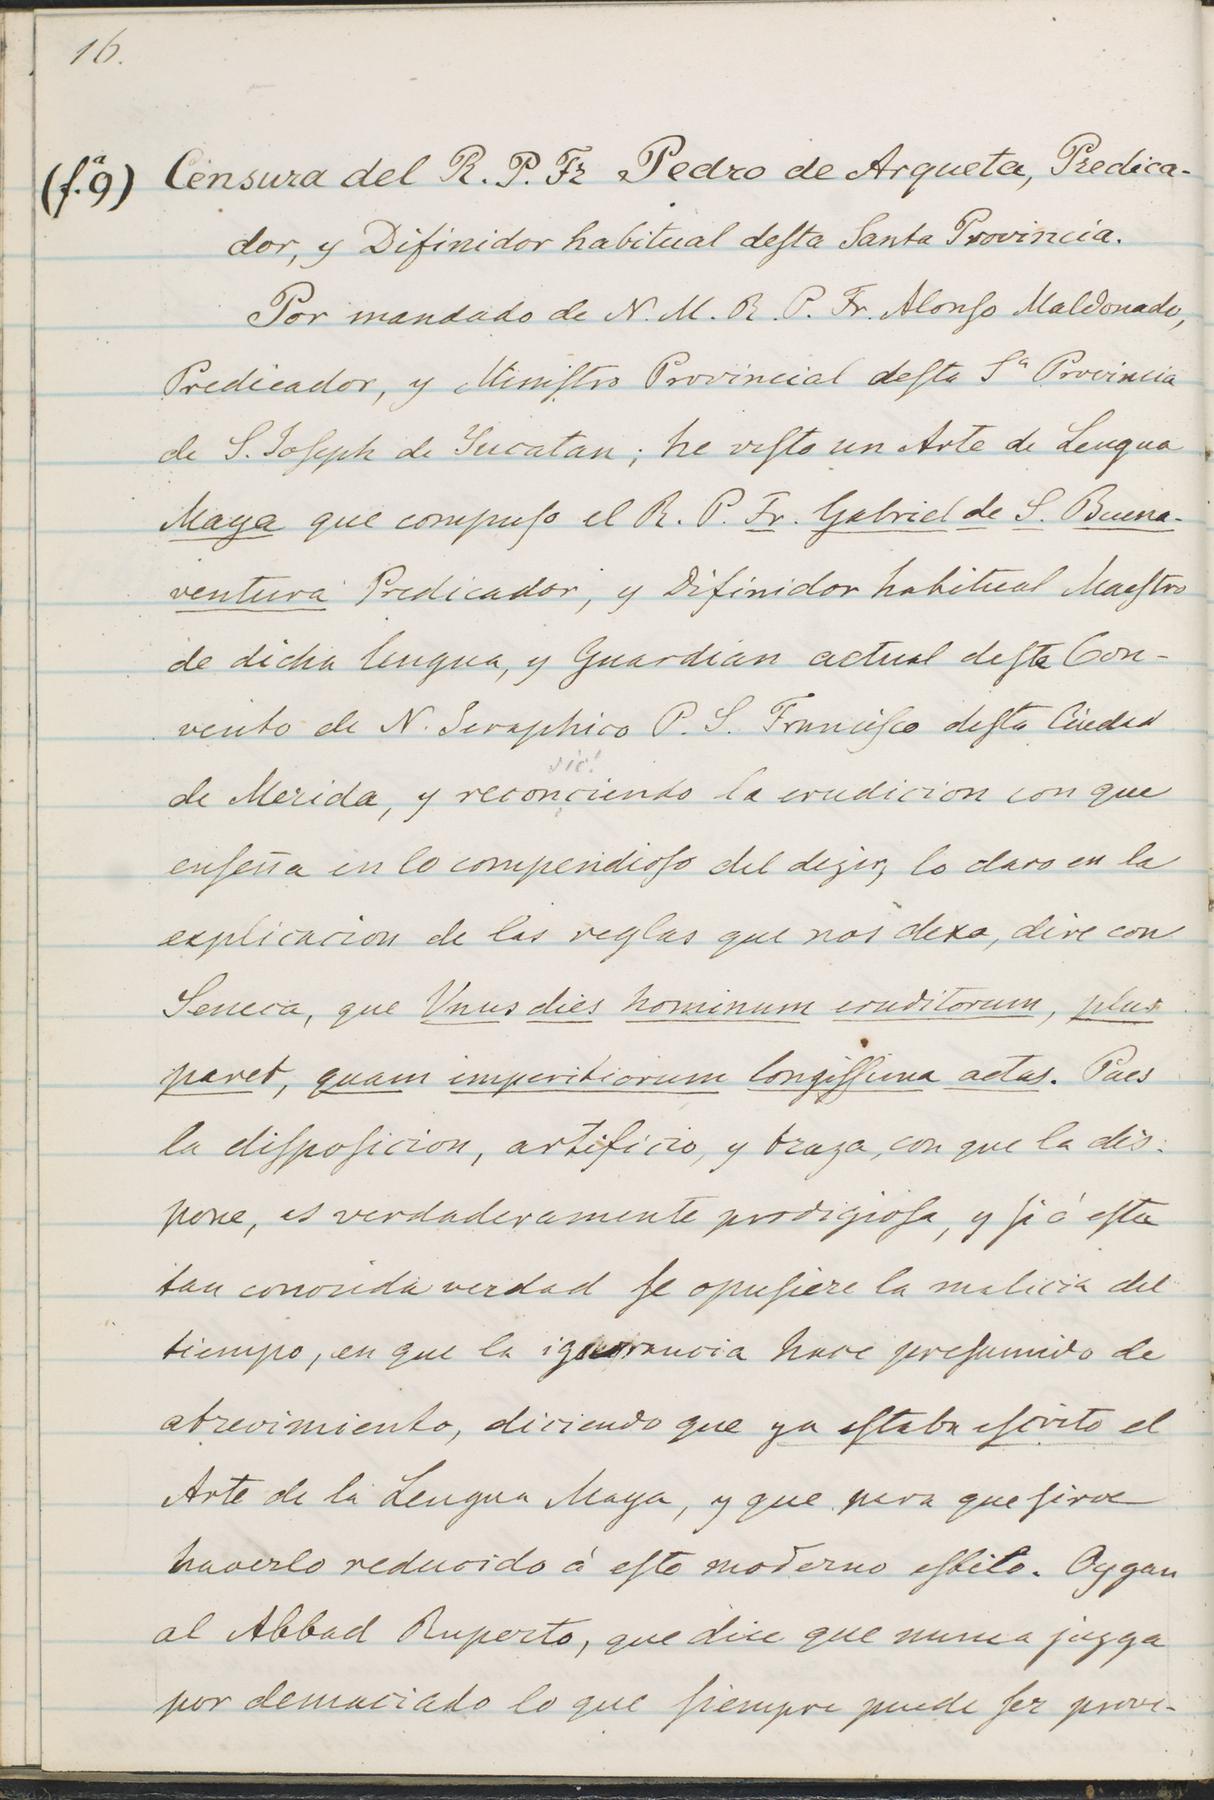 16.
(f.ª9) Censura del R. P. Fr Pedro de Arqueta, Predica-
dor, y Difinidor habitual deſta Santa Provincia.
Por mandado de N. M. R. P. Fr. Alonſo Maldonado,
Predicador, y Miniſtro Provincial deſta Sª Provincia
de S. Joſeph de Yucatan; he viſto un Arte de Lengua
Maya que compuſo el R. P. Fr. Gabriel de S. Buena-
ventura Predicador, y Difinidor habitual Maeſtro
de dicha lengua, y Guardian actual deſte Con-
vento de N. Seraphico P. S. Franciſco deſta Ciudad
sic!
de Merida, y reconciendo la erudicion con que
enſeña en lo compendioſo del dezir, lo claro en la
explicacion de las reglas que nos dexa, dire con
Seneca, que Vnus dies hominum eruditorum, plus
paret, quam imperitiorum longiſſima aetas. Pues
la diſpoſicion, artificio, y traza, con que la dis-
pone, es verdaderamente prodigioſa, y ſi á eſta
tan conocida verdad ſe opuſiere la malicia del
tiempo, en que la ignorancia hace preſumido de
atrevimiento, diciendo que ya eſtaba eſcrito el
Arte de la Lengua Maya, y que para que ſirve
haverlo reducido á eſte moderno eſtilo. Oygan
al Abbad Ruperto, que dice que nunca juzga
por demaciado lo que ſiempre puede ſer prove-